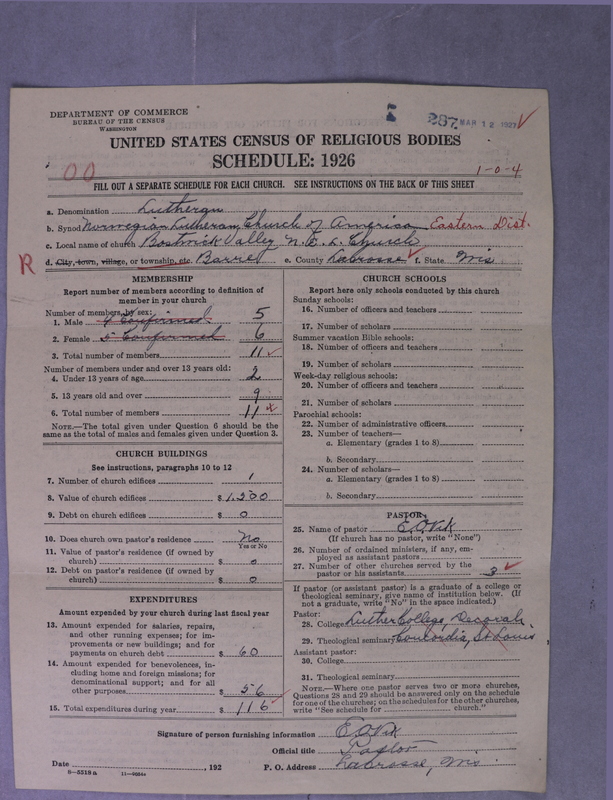 DEPARTMENT OF COMMERCE
BUREAU OF THE CENSUS
WASHINGTON
287 MAR 12 1927
UNITED STATES CENSUS OF RELIGIOUS BODIES
SCHEDULE: 1926
00
1-0-4
FILL OUT A SEPARATE SCHEDULE FOR EACH CHURCH. SEE INSTRUCTIONS ON THE BACK OF THIS SHEET
a. Denomination Lutheran
b. Synod Norwegian Lutheran Church of America Eastern Dist.
c. Local name of church Bostwick Valley N. E. L. Church
R d. City, town, village, or township, etc. Barre e. County LaCrosse f. State Wis
MEMBERSHIP
Report number of members according to definition of
member in your church
Number of members by sex:
1. Male 4 Confirmed 5
2. Female 5 Confirmed 6
3. Total number of members 11
Number of members under and over 13 years old:
4. Under 13 years of age 2
5. 13 years old and over 9
6. Total number of members 11
NOTE.—The total given under Question 6 should be
same as the total of males and females given under Question 3.
CHURCH BUILDINGS
See instructions, paragraphs 10 to 12
7. Number of church edifices 1
8. Value of church edifices $ 1,200
9. Debt on church edifices $ 0
10. Does church own pastor's residence? No
Yes or No
11. Value of pastor's residence (if owned by
church) $ 0
12. Debt on pastor's residence (if owned by
church) $ 0
EXPENDITURES
Amount expended by your church during last fiscal year
13. Amount expended for salaries, repairs,
and other running expenses; for im-
provements or new buildings; and for
payments on church debt $ 60
14. Amount expended for benevolences, in-
cluding home and foreign missions; for
denominational support; and for all
other purposes $ 56
15. Total expenditures during year $ 116
CHURCH SCHOOLS
Report here only schools conducted by this church
Sunday schools:
16. Number of officers and teachers
17. Number of scholars
Summer vacation Bible schools:
18. Number of officers and teachers
19. Number of scholars
Week-day religious schools:
20. Number of officers and teachers
21. Number of scholars
Parochial schools:
22. Number of administrative officers
23. Number of teachers—
a. Elementary (grades 1 to 8)
b. Secondary
24. Number of scholars—
a. Elementary (grades 1 to 8)
b. Secondary
PASTOR
25. Name of pastor E. O. Vik
(If church has no pastor, write "None")
26. Number of ordained ministers, if any, em-
ployed as assistant pastors
27. Number of other churches served by the
pastor or his assistants 3
If pastor (or assistant pastor) is a graduate of a college or
theological seminary, give name of institution below. (If
not a graduate, write "No" in the space indicated.)
Pastor:
28. College Luther College, Decorah
29. Theological seminary Concordia, St Louis
Assistant pastor:
30. College
31. Theological seminary
NOTE.—Where one pastor serves two or more churches,
Questions 28 and 29 should be answered only on the schedule
for one of the churches; on the schedules for the other churches,
write "See schedule for church."
Signature of person furnishing information E O Vik
Official title Pastor
Date , 192 P. O. Address LaCrosse, Wis
8—5318 a